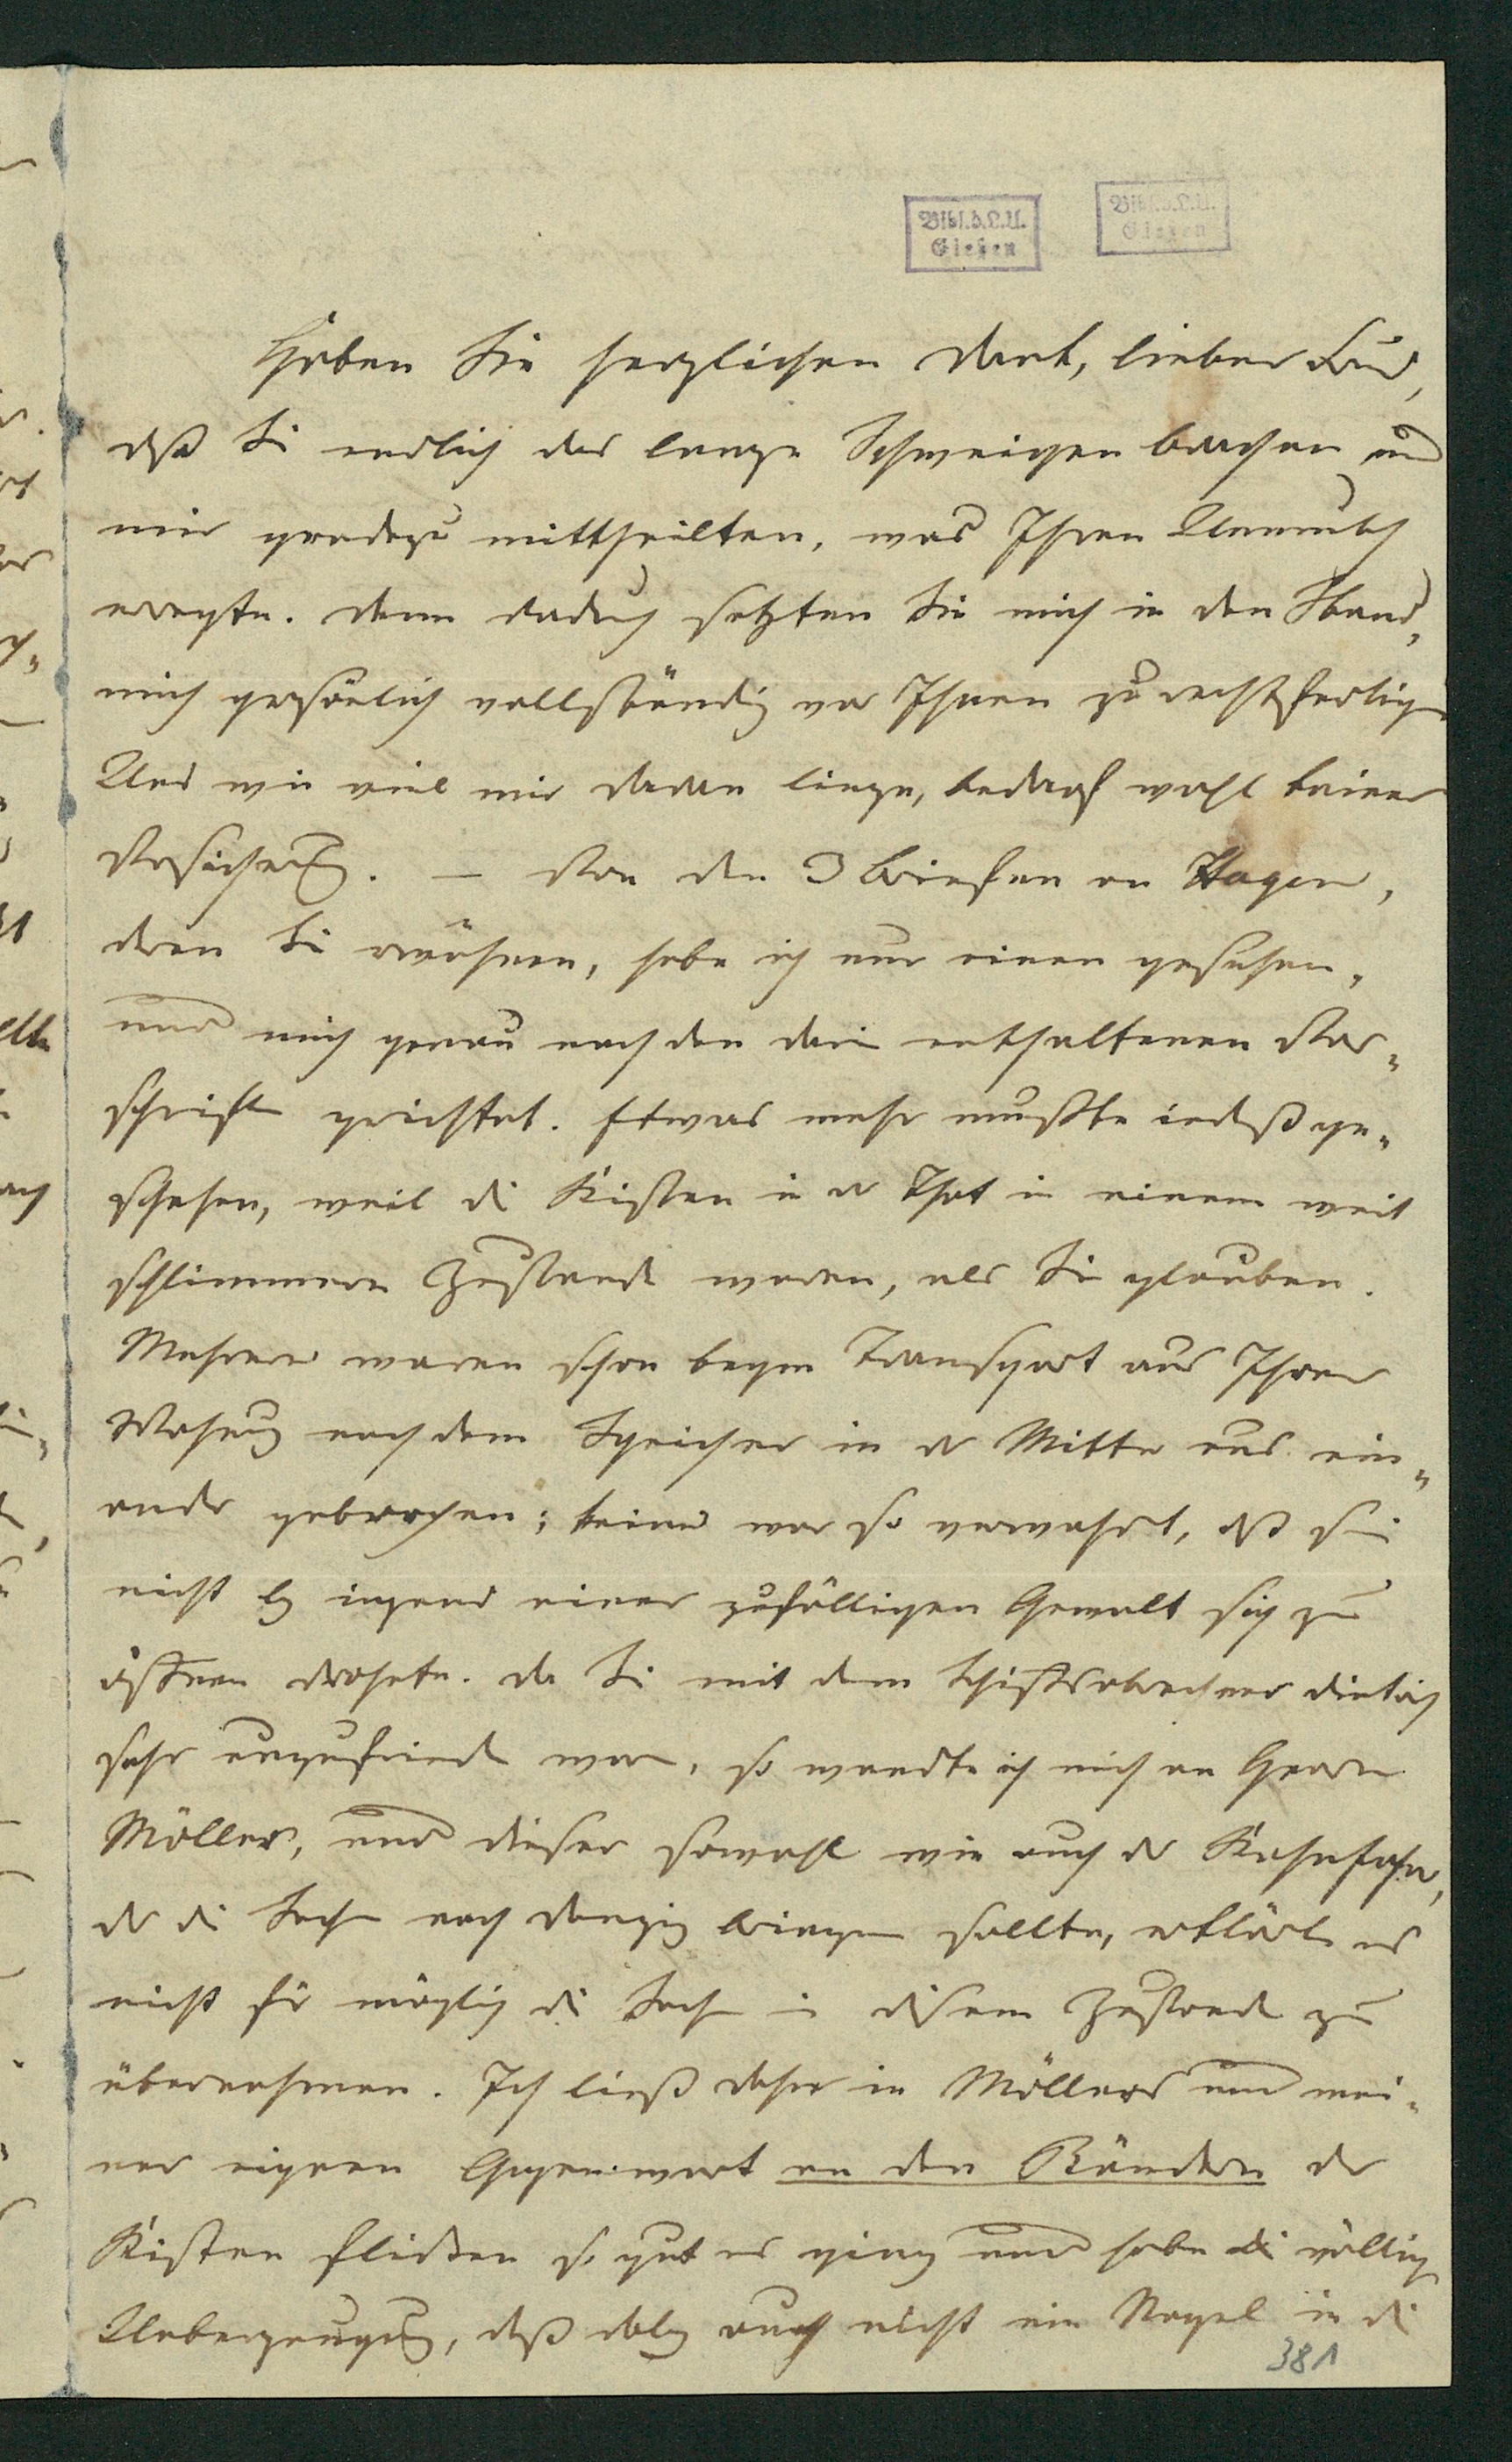 Bibl. d. L. U.
Gießen
Bibl. d. L. U.
Gießen
Haben Sie herzlichen Dank, lieber Frd,
daß Sie endlich das lange Schweigen brachen und
mir gradezu mittheilten, was Ihren Unmuth
erregte. Denn dadurch setzten Sie mich in den Stand,
mich persönlich vollständig vor Ihnen zu rechtfertigen
Und wie viel mir daran liege, bedarf wohl keiner
Versicherung. – Von den 3 Briefen an Hagen,
deren Sie erwähnen, habe ich nur einen gesehen,
und mich genau nach den darin enthaltenen Vor-
schriften gerichtet. Etwas mehr mußte indeß ge-
schehen, weil die Kisten in der That in einem weit
schlimmern Zustande waren, als Sie glauben.
Mehrere waren schon beym Transport aus Ihrer
Wohnung nach dem Speicher in der Mitte aus ein-
ander gebrochen; keine war so verwahrt, daß sie
nicht bey irgend einer zufälligen Gewalt sich zu
öffnen drohete. Da Sie mit dem Schiffsabrechner Dietrich
sehr unzufrieden waren, so wandte ich mich an Herrn
Möller, und dieser sowohl wie auch der Kahnfahrer,
der die Sachen nach Danzig bringen sollte, erklärten es
nicht für möglich die Sachen in diesem Zustande zu
übernehmen. Ich ließ daher in Möllers und mei-
ner eignen Gegenwart an den Rändern der
Kisten flicken so gut es ging und habe die völlige
Ueberzeugung, daß dabey auch nicht ein Nagel in die
381